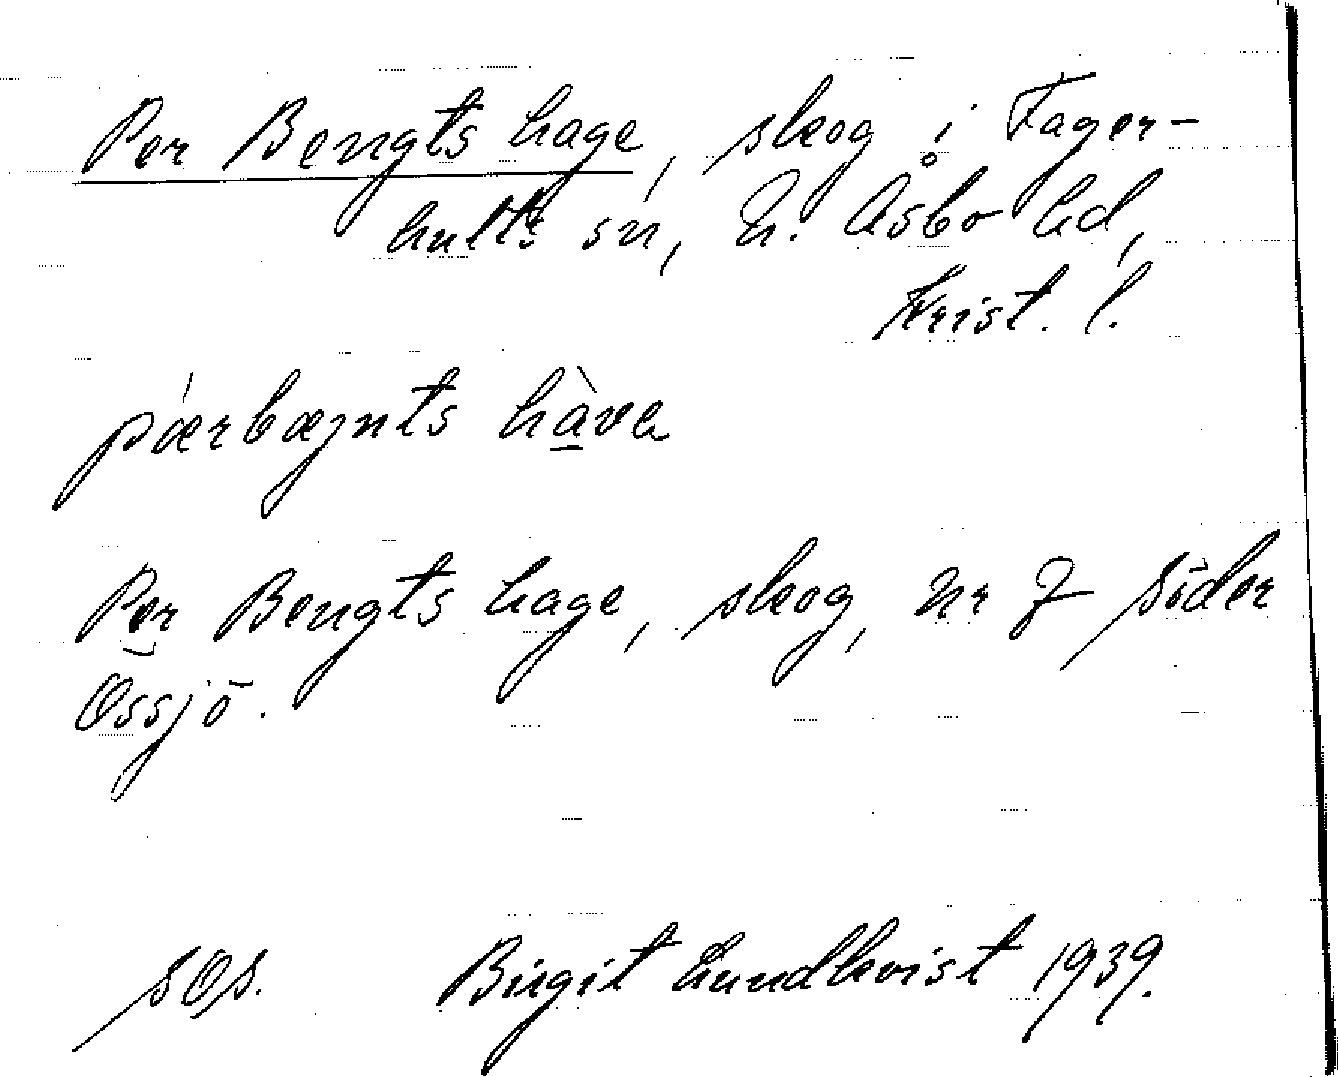 Per Bengts hage, skog i Fager-
hults sn, N. Åsbo hd,
Krist. l.
pærbæŋnts hàva
Per Bengts hage, skog, nr 7 Söder
Össjö.
sÖs. Birgit Lundkvist 1939.